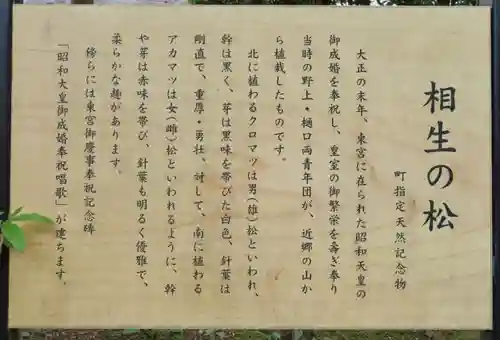 相生の松
町指定天然記念物
大正の末年、東宮に在られた昭和天皇の
御成婚を奉祝し、皇室の御繁栄を寿ぎ奉り
当時の野上・樋口両青年団が、近郷の山か
ら植栽したものです。
北に植わるクロマツは男(雄)松といわれ、
幹は黒く、芽は黒味を帯びた白色、針葉は
剛直で、重厚・勇壮、対して、南に植わる
アカマツは女(雌)松といわれるように、幹
や芽は赤味を帯び、針葉も明るく優雅で、
柔らかな趣があります。
傍らには東宮御慶事奉祝記念碑
「昭和天皇御成婚奉祝唱歌」が建ちます。